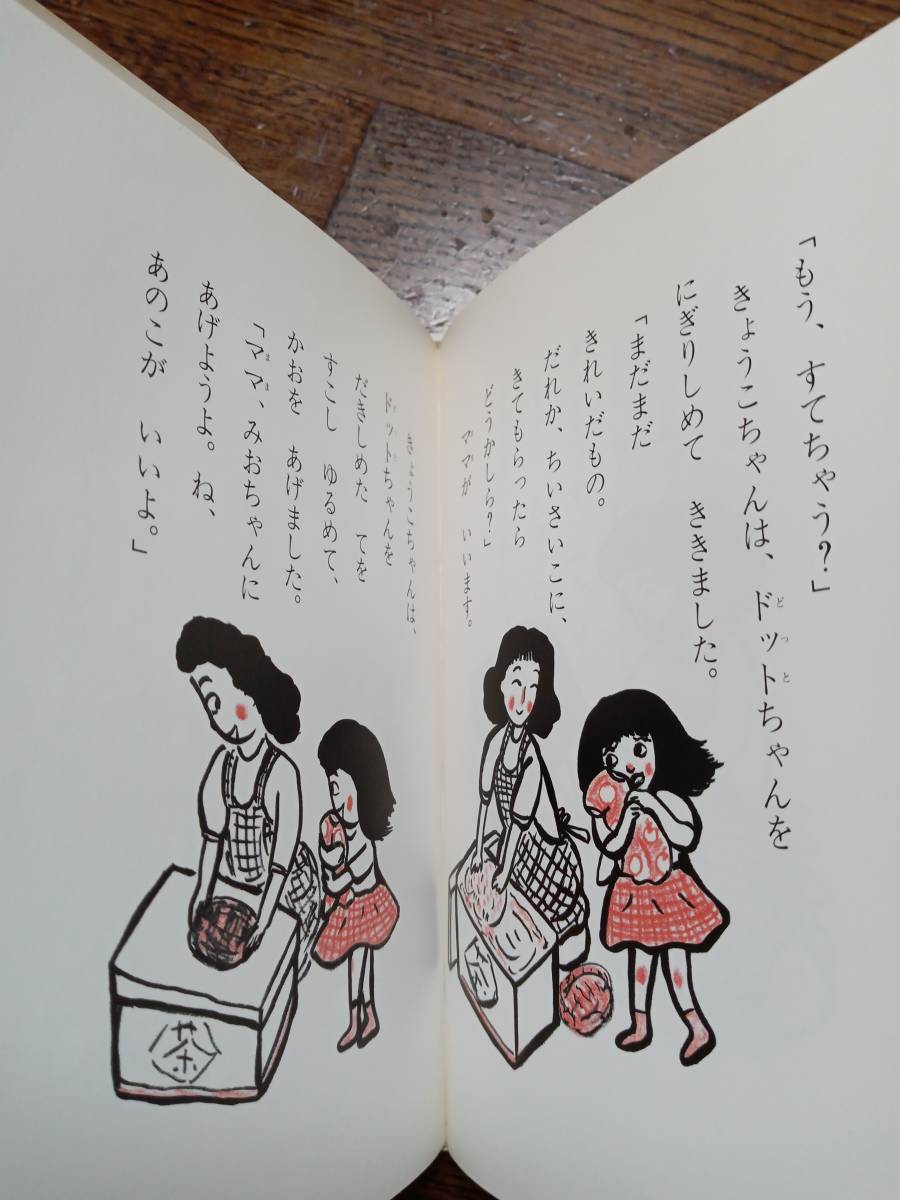 「もう、すてちゃう?」
きょうこちゃんは、ドットちゃんを
にぎりしめて ききました。
「まだまだ
きれいだもの。
だれか、ちいさいこに、
きてもらったら
どうかしら?」
ママが いいます。
きょうこちゃんは、
ドットちゃんを
だきしめた てを
すこし ゆるめて、
かおを あげました。
「ママ、みおちゃんに
あげようよ。ね、
あのこが いいよ。」
茶